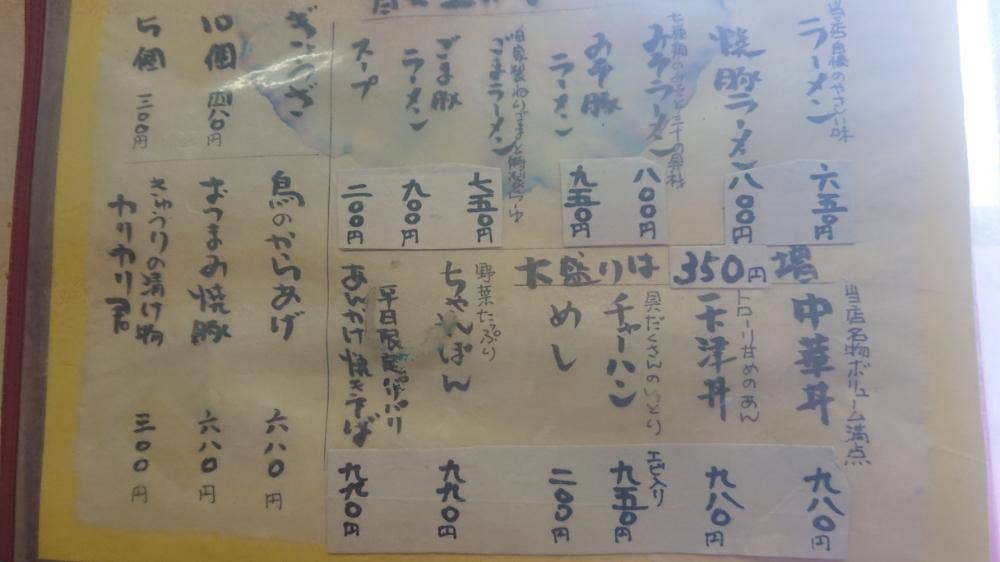 当店自慢のやさしい味
ラーメン 六五〇円
焼豚ラーメン 八〇〇円
みそラーメン 八〇〇円
みそ豚
ラーメン 九五〇円
ごまラーメン 七五〇円
ごま豚
ラーメン 九〇〇円
スープ 二〇〇円
大盛りは 350円増
当店名物ボリューム満点
中華丼 九八〇円
トローリ甘めのあん
天津丼 九八〇円
具だくさんのしっとり
チャーハン エビ入り 九五〇円
めし 二〇〇円
野菜たっぷり
ちゃんぽん 九九〇円
平日限定パリパリ
あんかけ焼きそば 九九〇円
ぎょうざ
10個 四八〇円
5個 三〇〇円
鳥のからあげ 六八〇円
おつまみ焼豚 六八〇円
きゅうりの漬け物
カリカリ君 三〇〇円